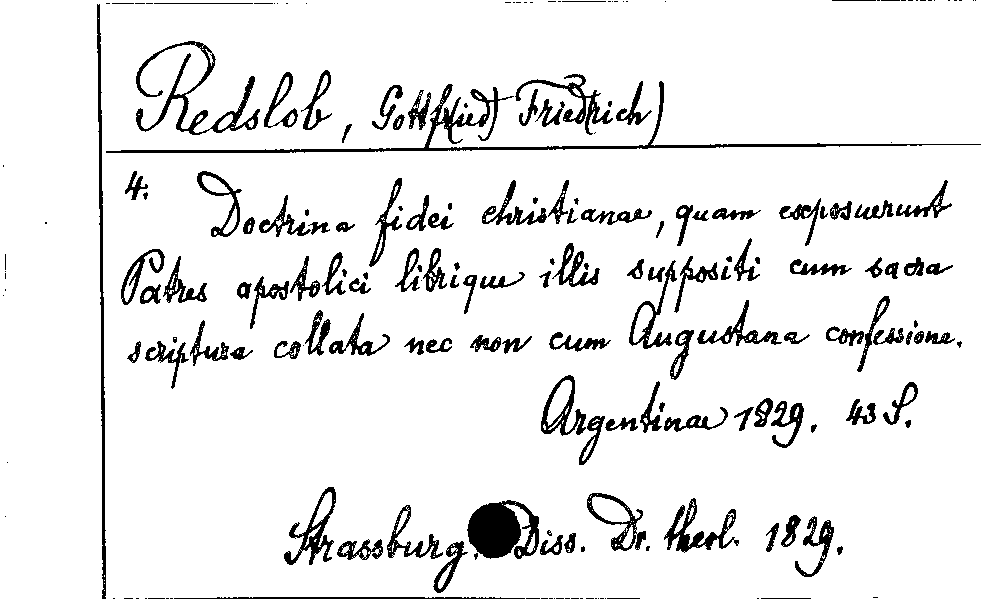 Redslob, Gottfr(ied) Fried(rich)
4. Doctrina fidei christianae, quam exposuerunt
Patres apostolici librique illis suppositi cum sacra
scriptura collata nec non cum Augustana confessione.
Argentinae 1829. 43 S.
Strassburg. Diss. Dr. theol. 1829.